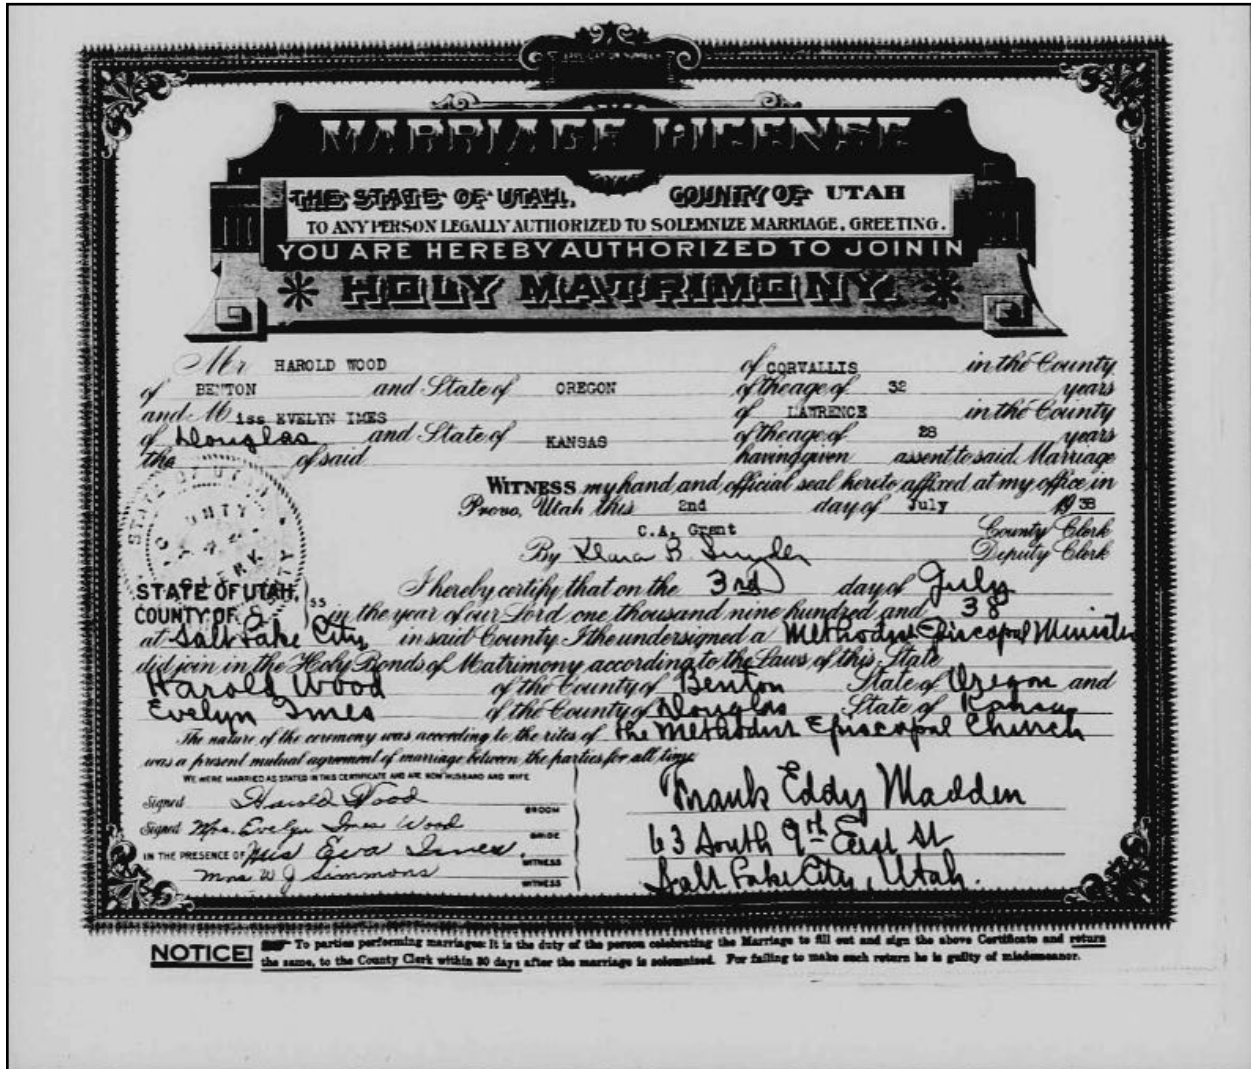 APPLICATION NUMBER
MARRIAGE LICENSE
THE STATE OF UTAH, COUNTY OF UTAH
TO ANY PERSON LEGALLY AUTHORIZED TO SOLEMNIZE MARRIAGE, GREETING.
YOU ARE HEREBY AUTHORIZED TO JOIN IN
HOLY MATRIMONY.
Mr HAROLD WOOD of CORVALLIS in the County
of BENTON and State of OREGON of the age of 32 years
and Miss EVELYN IMES of LAWRENCE in the County
of Douglas and State of KANSAS of the age of 28 years
the of said having given assent to said Marriage
WITNESS my hand and official seal hereto affixed at my office in
Provo, Utah this 2nd day of July 1938
C.A. Grant County Clerk
By Klara B Snyder Deputy Clerk
STATE OF UTAH COUNTY CLERK
I hereby certify that on the 3rd day of July
STATE OF UTAH,
COUNTY OF ss in the year of our Lord one thousand nine hundred and 38
at Salt Lake City in said County I the undersigned a Methodist Episcopal Minister
did join in the Holy Bonds of Matrimony according to the Laws of this State
Harold Wood of the County of Benton State of Oregon and
Evelyn Imes of the County of Douglas State of Kansas
The nature of the ceremony was according to the rites of the Methodist Episcopal Church
was a present mutual agreement of marriage between the parties for all time
WE WERE MARRIED AS STATED IN THIS CERTIFICATE AND ARE NOW HUSBAND AND WIFE
Signed Harold Wood GROOM
Signed Mrs. Evelyn Imes Wood BRIDE
IN THE PRESENCE OF Eva Imes. WITNESS
Mrs W J Simmons WITNESS
Frank Eddy Madden
63 South 9th East St
Salt Lake City, Utah.
NOTICE! To parties performing marriages: It is the duty of the person celebrating the Marriage to fill out and sign the above Certificate and return
the same, to the County Clerk within 30 days after the marriage is solemnized. For failing to make such return he is guilty of misdemeanor.